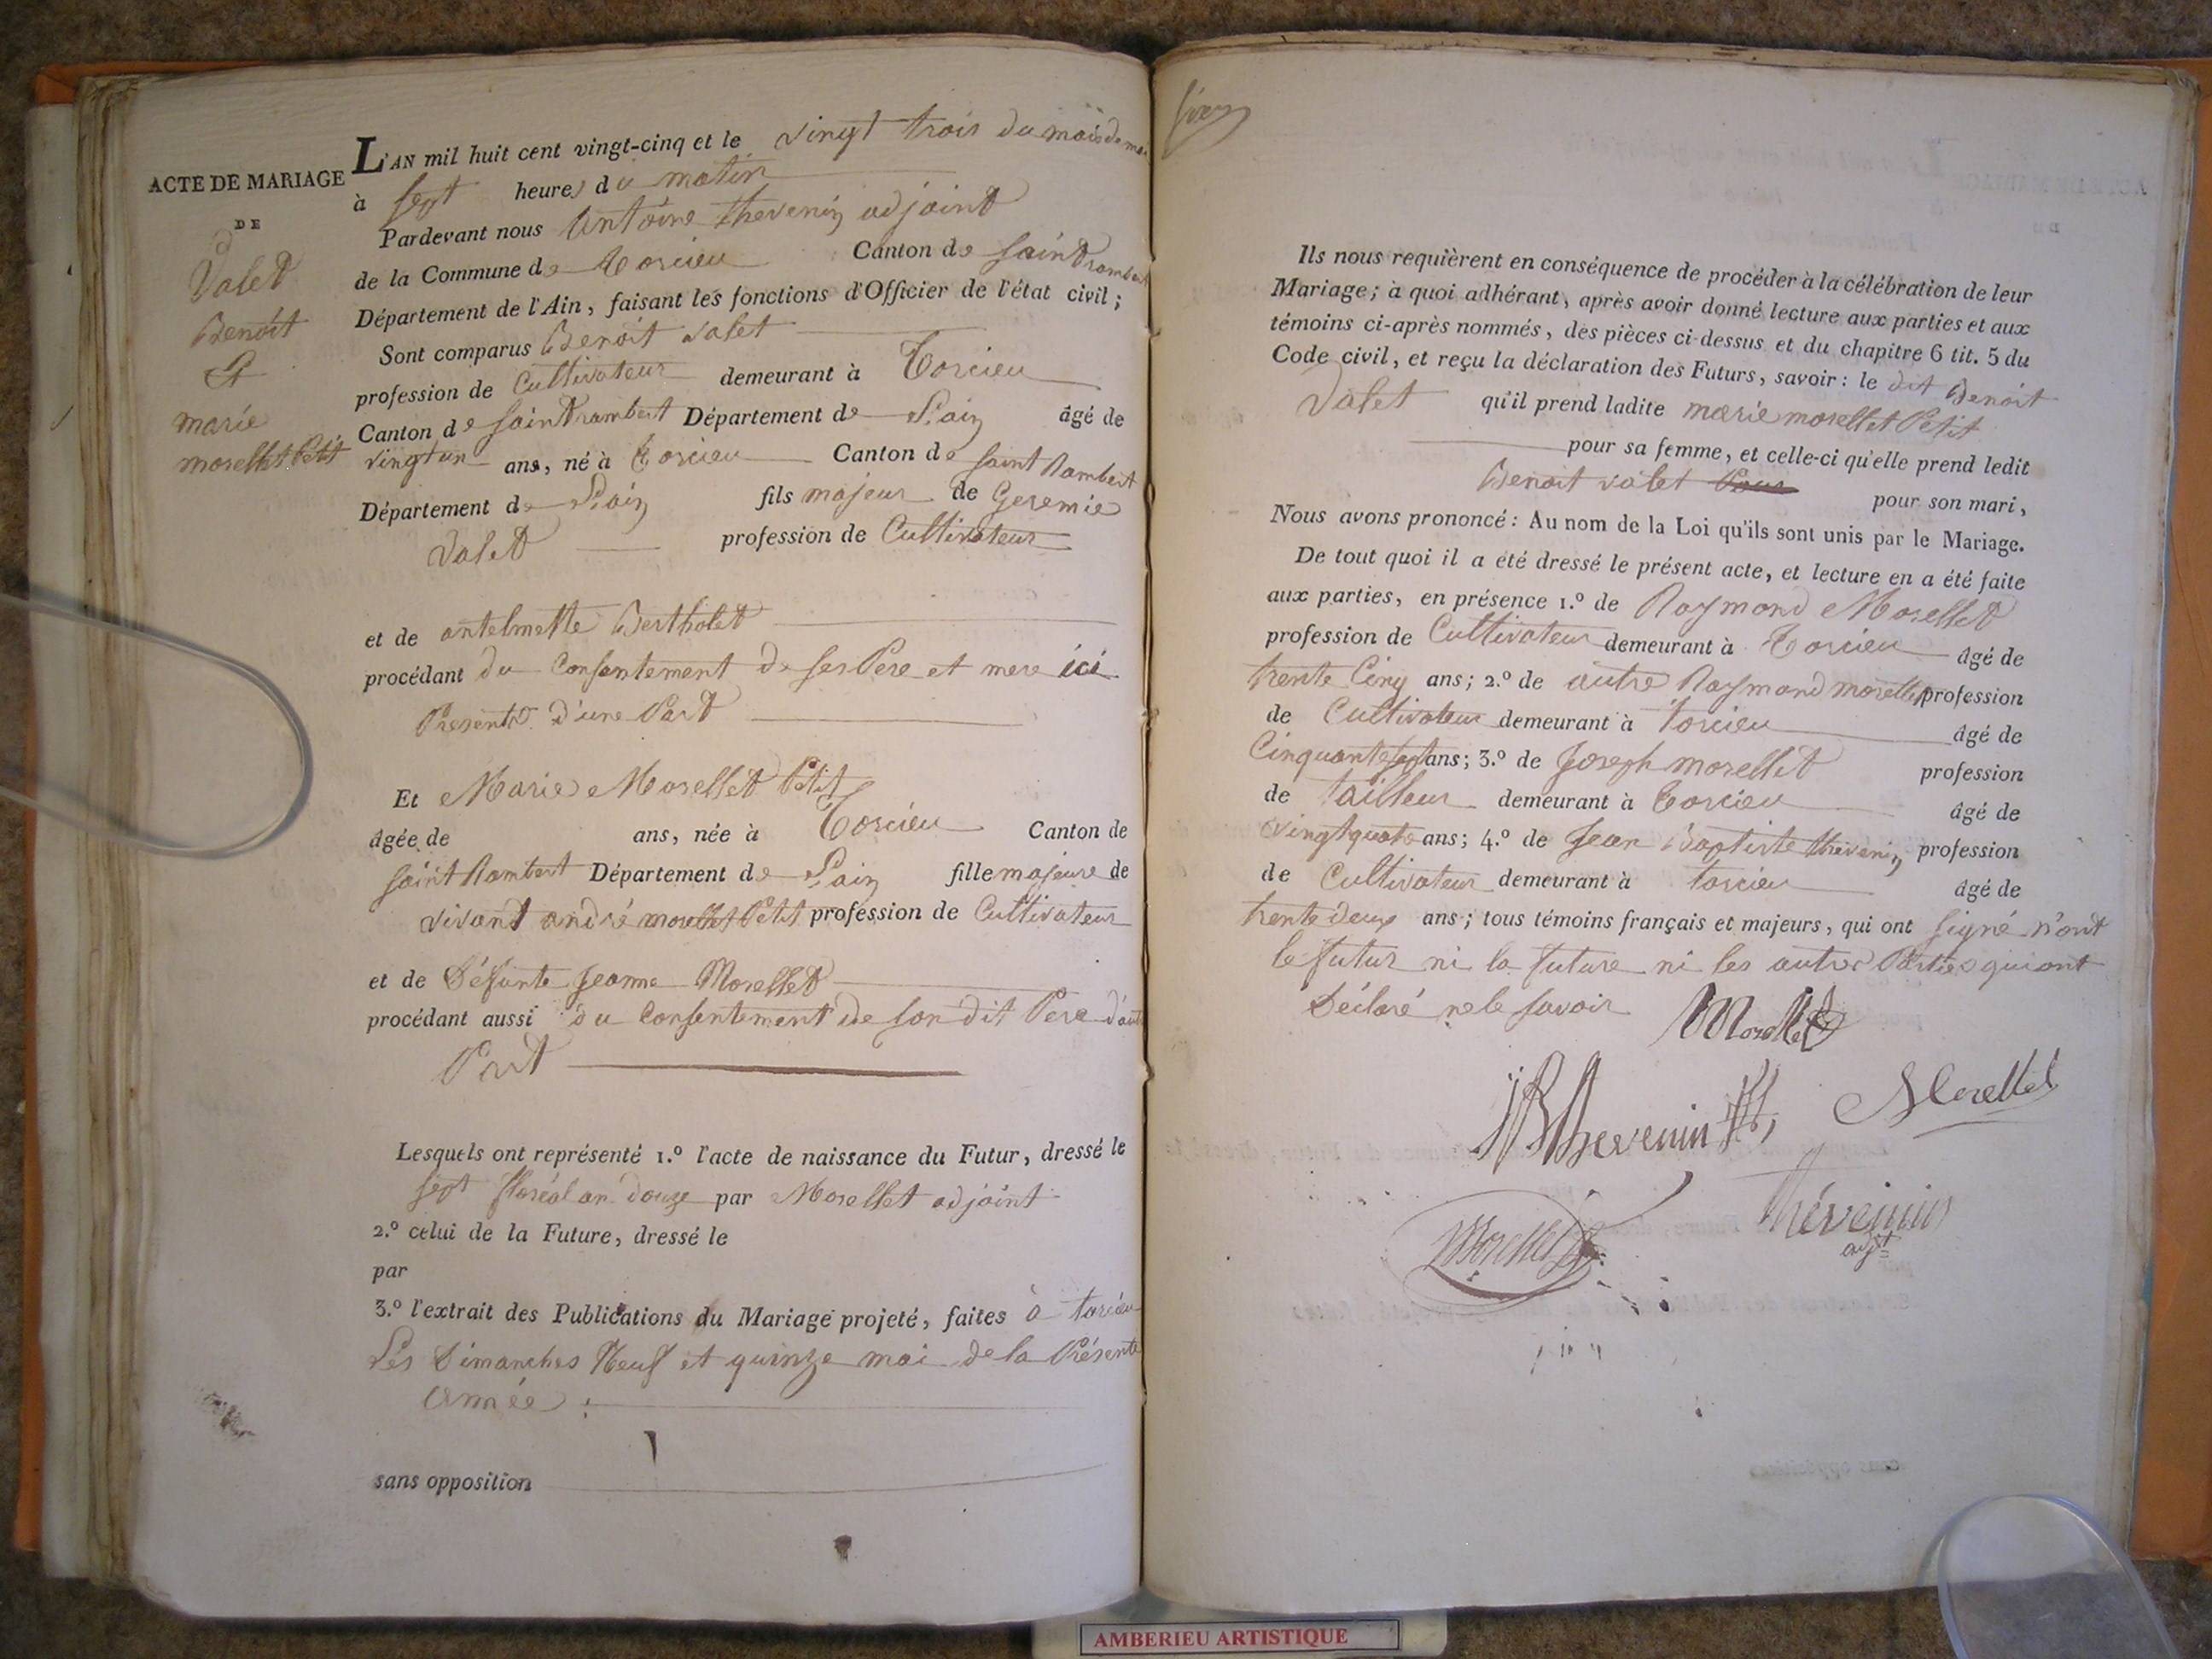 ACTE DE MARIAGE
DE
Valet
Benoit
Et
marie
morellet Petit
L'AN mil huit cent vingt-cinq et le vingt trois du mois de mai
à sept heures du matin
Pardevant nous Antoine thevenin adjoint
de la Commune de torcieu Canton de saint rambert
Département de l'Ain, faisant les fonctions d'Officier de l'état civil;
Sont comparus Benoit valet
profession de Cultivateur demeurant à Torcieu
Canton de saint rambert Département de l'ain âgé de
vingt un ans, né à torcieu Canton de saint Rambert
Département de l'ain fils majeur de Geremie
Valet profession de Cultivateur
et de antelmette Bertholet
procédant du Consentement de ses Pere et mere ici
Presents d'une Part
Et Marie Morellet Petit
âgée de ans, née à Torcieu Canton de
saint Rambert Département de l'ain fille majeure de
vivant andré morellet Petit profession de Cultivateur
et de Défunte Jeanne Morellet
procédant aussi du Consentement de son dit Pere d'autre
Part
Lesquels ont représenté 1.° l'acte de naissance du Futur, dressé le
sept floréal an douze par Morellet adjoint
2.° celui de la Future, dressé le
par
3.° l'extrait des Publications du Mariage projeté, faites à torcieu
Les Dimanches Neuf et quinze mai de la Présente
année
sans opposition
Ils nous requièrent en conséquence de procéder à la célébration de leur
Mariage; à quoi adhérant, après avoir donné lecture aux parties et aux
témoins ci-après nommés, des pièces ci-dessus et du chapitre 6 tit. 5 du
Code civil, et reçu la déclaration des Futurs, savoir: le dit Benoit
Valet qu'il prend ladite marie morellet Petit
pour sa femme, et celle-ci qu'elle prend ledit
Benoit valet pour son mari,
Nous avons prononcé: Au nom de la Loi qu'ils sont unis par le Mariage.
De tout quoi il a été dressé le présent acte, et lecture en a été faite
aux parties, en présence 1.° de Raymond Morellet
profession de Cultivateur demeurant à Torcieu âgé de
trente Cinq ans; 2.° de autre Raymond morellet profession
de Cultivateur demeurant à torcieu âgé de
Cinquante sept ans; 3.° de Joseph morellet profession
de tailleur demeurant à torcieu âgé de
vingt quatre ans; 4.° de Jean Baptiste thevenin profession
de Cultivateur demeurant à torcieu âgé de
trente deux ans; tous témoins français et majeurs, qui ont signé n'ont
le futur ni la future ni les autres Parties qui ont
Déclaré ne le savoir Morellet
JB Thevenin Morellet
Morellet Thévenin
adjt
AMBERIEU ARTISTIQUE